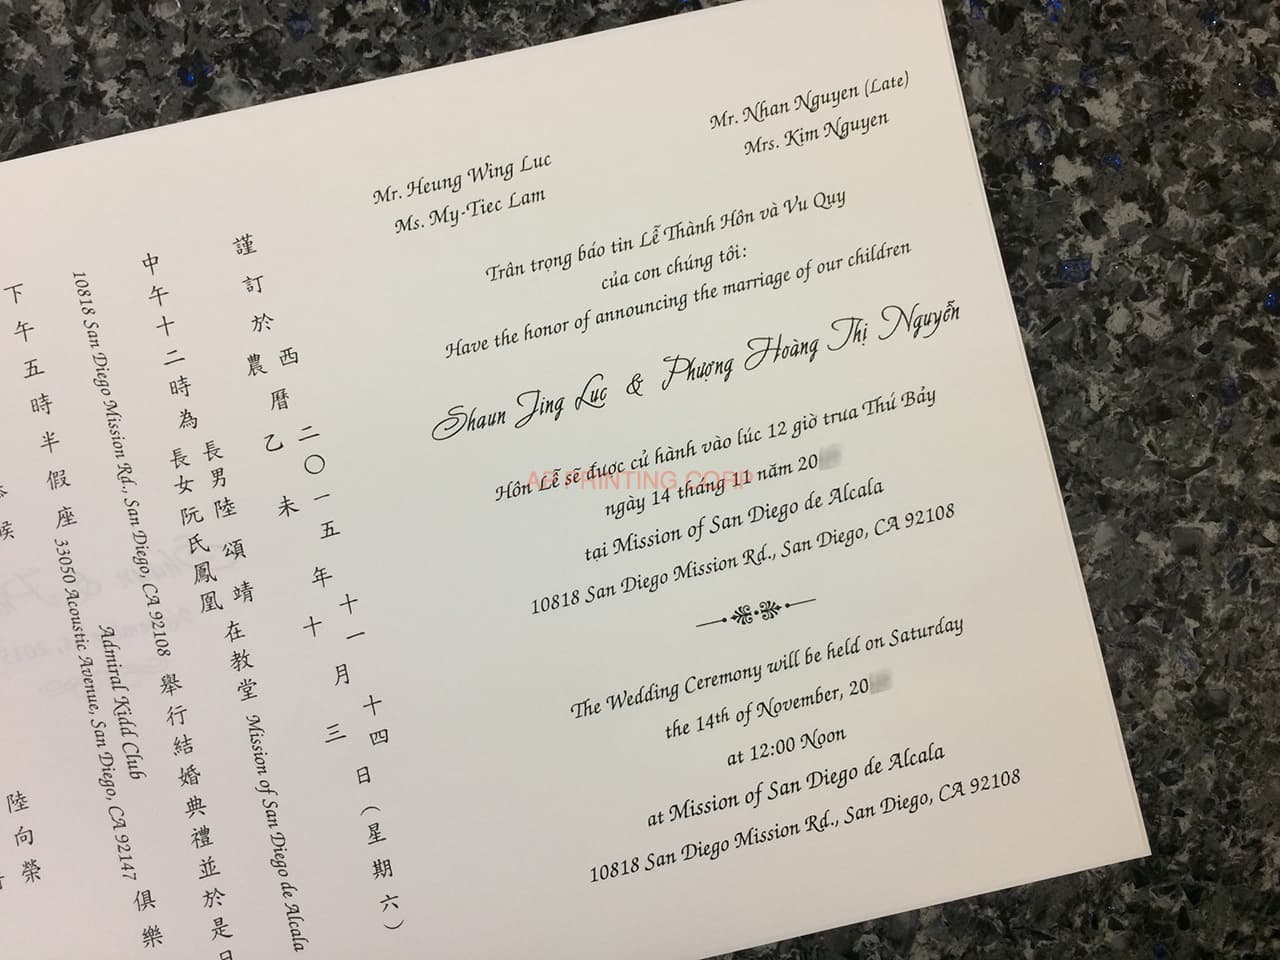 Mr. Heung Wing Luc
Ms. My-Tiec Lam
Mr. Nhan Nguyen (Late)
Mrs. Kim Nguyen
Trân trọng báo tin Lễ Thành Hôn và Vu Quy
của con chúng tôi:
Have the honor of announcing the marriage of our children
Shaun Jing Luc & Phượng Hoàng Thị Nguyễn
Hôn Lễ sẽ được cử hành vào lúc 12 giờ trua Thứ Bảy
ngày 14 tháng 11 năm 20
tại Mission of San Diego de Alcala
10818 San Diego Mission Rd., San Diego, CA 92108
The Wedding Ceremony will be held on Saturday
the 14th of November, 20
at 12:00 Noon
at Mission of San Diego de Alcala
10818 San Diego Mission Rd., San Diego, CA 92108
謹訂於
西曆二〇一五年十一月十四日（星期六）
農 乙未 十 三
中午十二時為
長男陸頌靖
長女阮氏鳳凰
在教堂 Mission of San Diego de Alcala
10818 San Diego Mission Rd., San Diego, CA 92108
舉行結婚典禮並於是日
下午五時半假座
Admiral Kidd Club
33050 Acoustic Avenue, San Diego, CA 92147
俱樂
候
陸向榮
AP PRINTING CORP